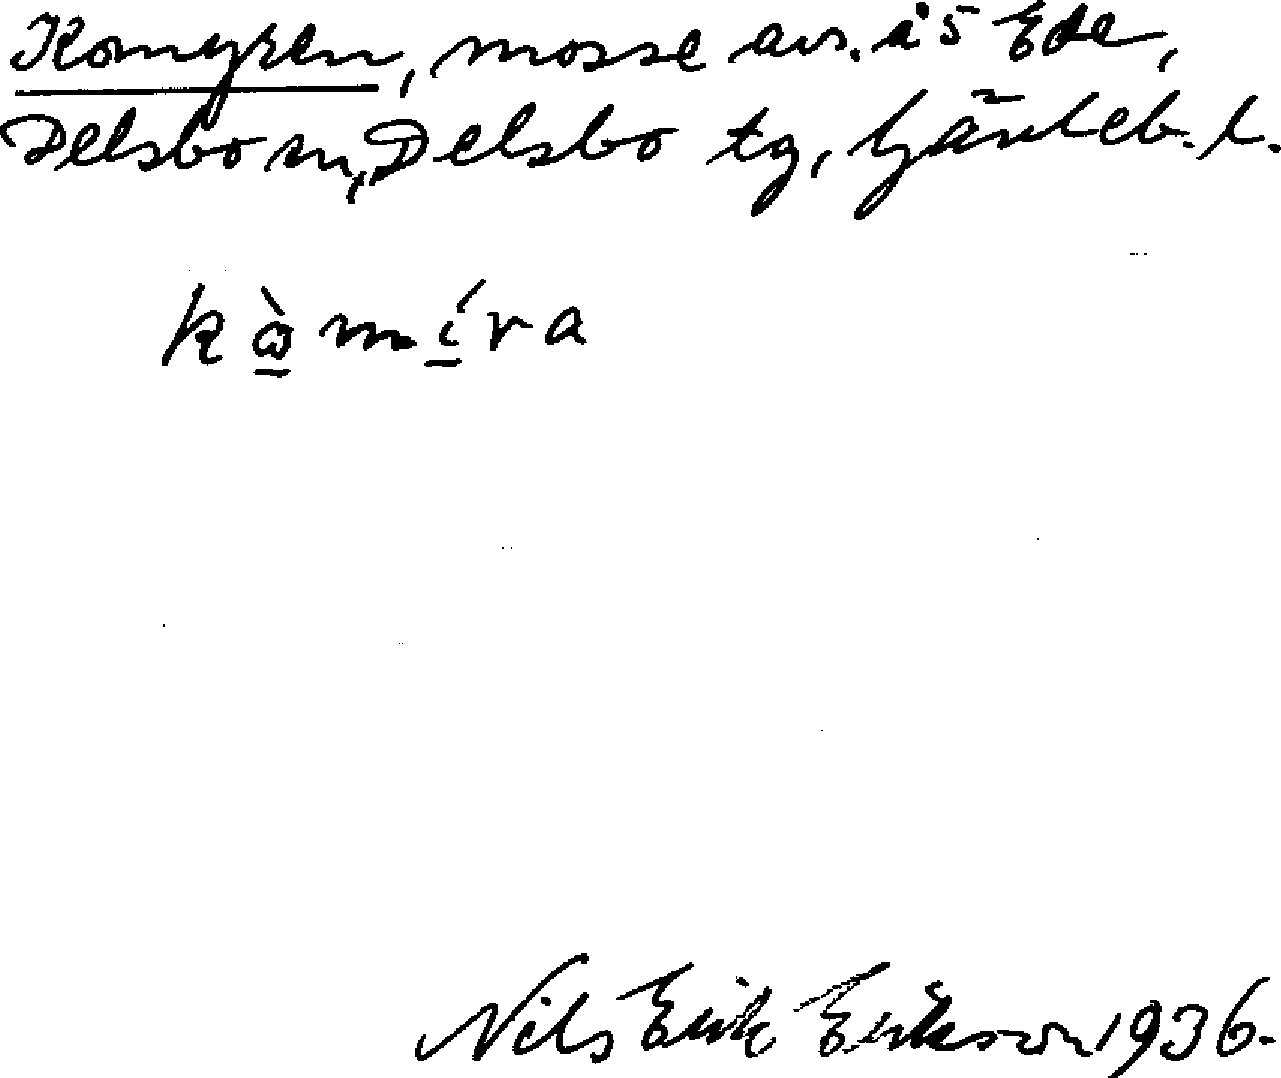 Komyren, mosse avs. å 5 Ede,
Delsbo sn, Delsbo tg, Gävleb. l.
kò̱mí̱ra
Nils Erik Erikson 1936.